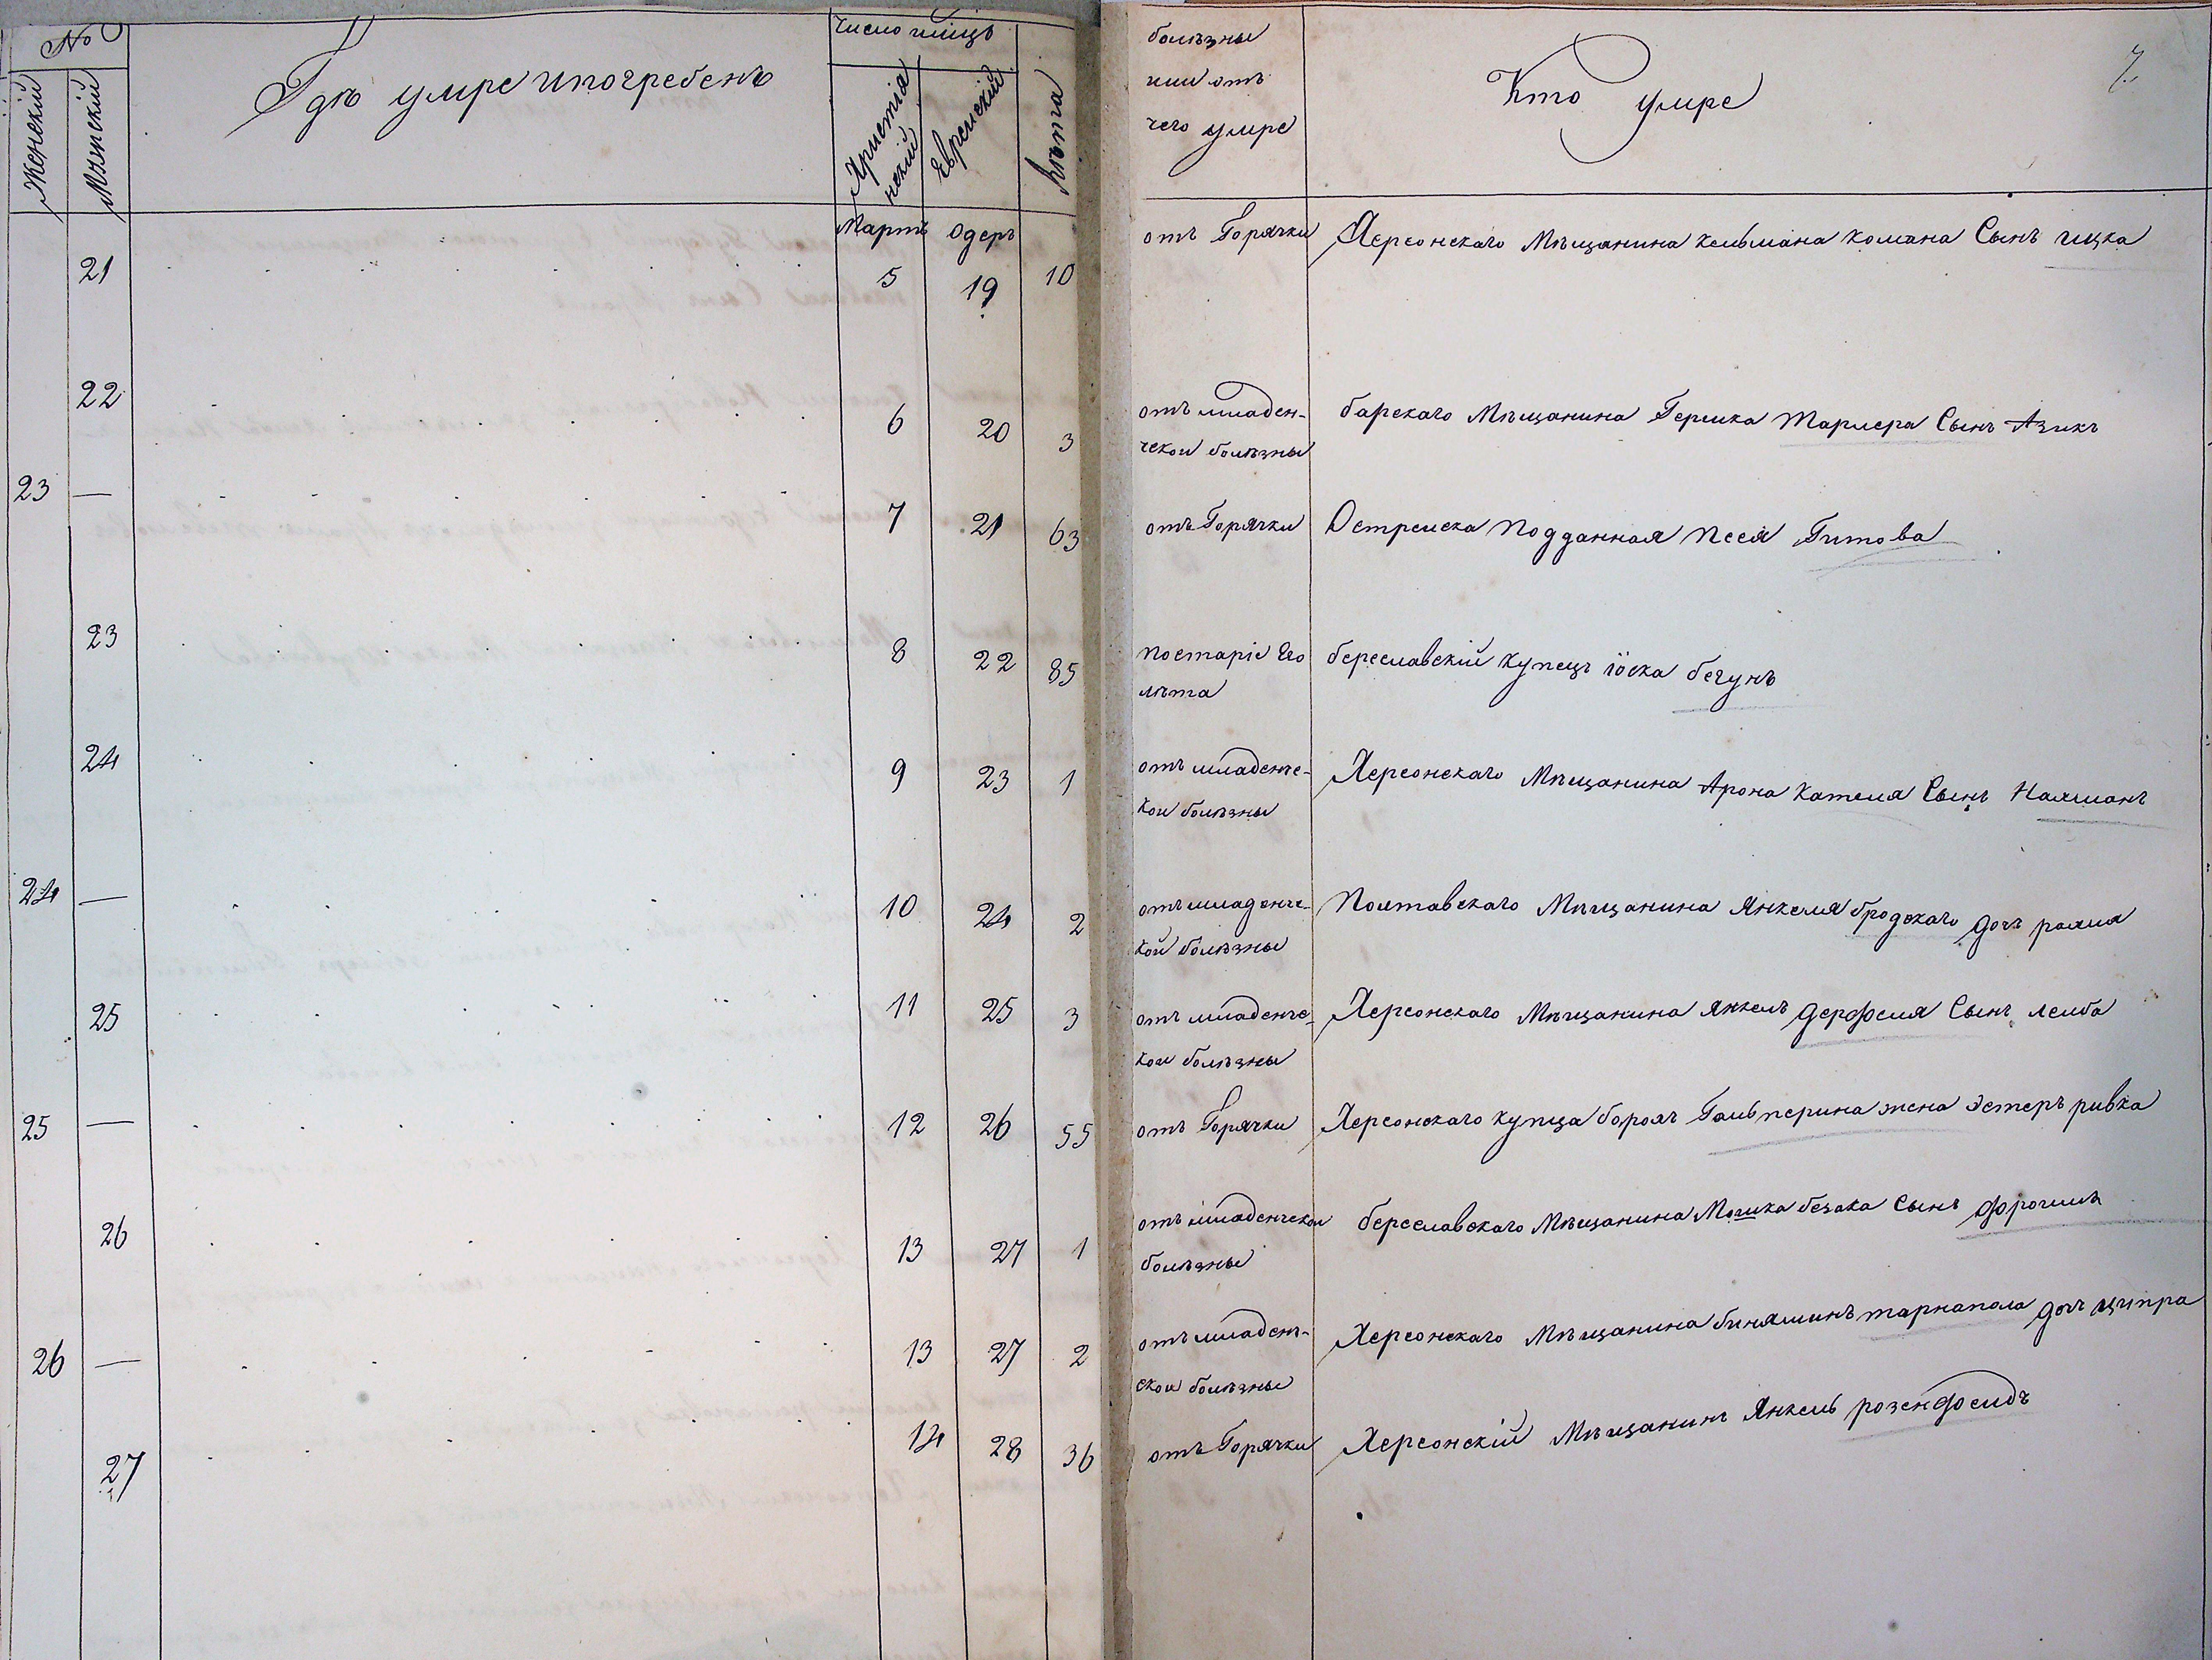 №
Женскій
Мужескій
Гдѣ умре и погребенъ
Число мѣсяцъ
Христіа
нскій
Еврейскій
Лѣта
болѣзны
или отъ
чего умре
Кто умре
7.
Мартъ Одеръ
21 5 19 10 отъ Горячки Херсонскаго Мѣщанина Кельмана Комана Сынъ ицка
22 6 20 3 отъ младен-
ческои болѣзны
барскаго Мѣщанина Гершка Тармера Сынъ Азикъ
23 — 7 21 63 отъ Горячки Острейска Подданная Песя Гитова
23 8 22 85 по старіе Его
лѣта
береславскій Купецъ іоска бегунъ
24 9 23 1 отъ младенче-
кои болѣзны
Херсонскаго Мѣщанина Арона Кателя Сынъ Нахманъ
24 — 10 24 2 отъ младенче-
кой болѣзны
Полтавскаго Мѣщанина Янкеля бродскаго дочъ рахля
25 11 25 3 отъ младенче-
кои болѣзны
Херсонскаго Мѣщанина Янкель Дерфеля Сынъ лейба
25 — 12 26 55 отъ Горячки Херсонскаго купца борохъ Гальперина жена Эстеръ ривка
26 13 27 1 отъ младенческои
болѣзны
береславскаго Мѣщанина Мошка безака Сынъ Фроимъ
26 — 13 27 2 отъ младенъ-
скои болѣзны
Херсонскаго Мѣщанина биняминъ тарнапола дочъ ципра
27 14 28 36 отъ Горячки Херсонскій Мѣщанинъ Янкель розенфельдъ